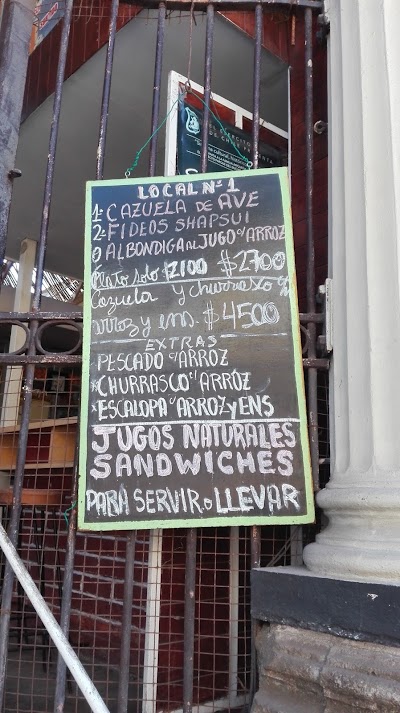 LOCAL Nº 1
1º CAZUELA DE AVE
2º FIDEOS SHAPSUI
O ALBONDIGA AL JUGO C/ARROZ
Plato solo $2100 $2700
Cazuela y churrasxo c/
arroz y ens. $4500
EXTRAS
PESCADO C/ARROZ
*CHURRASCO C/ARRÓZ
*ESCALOPA C/ARROZ Y ENS
JUGOS NATURALES
SANDWICHES
PARA SERVIR O LLEVAR